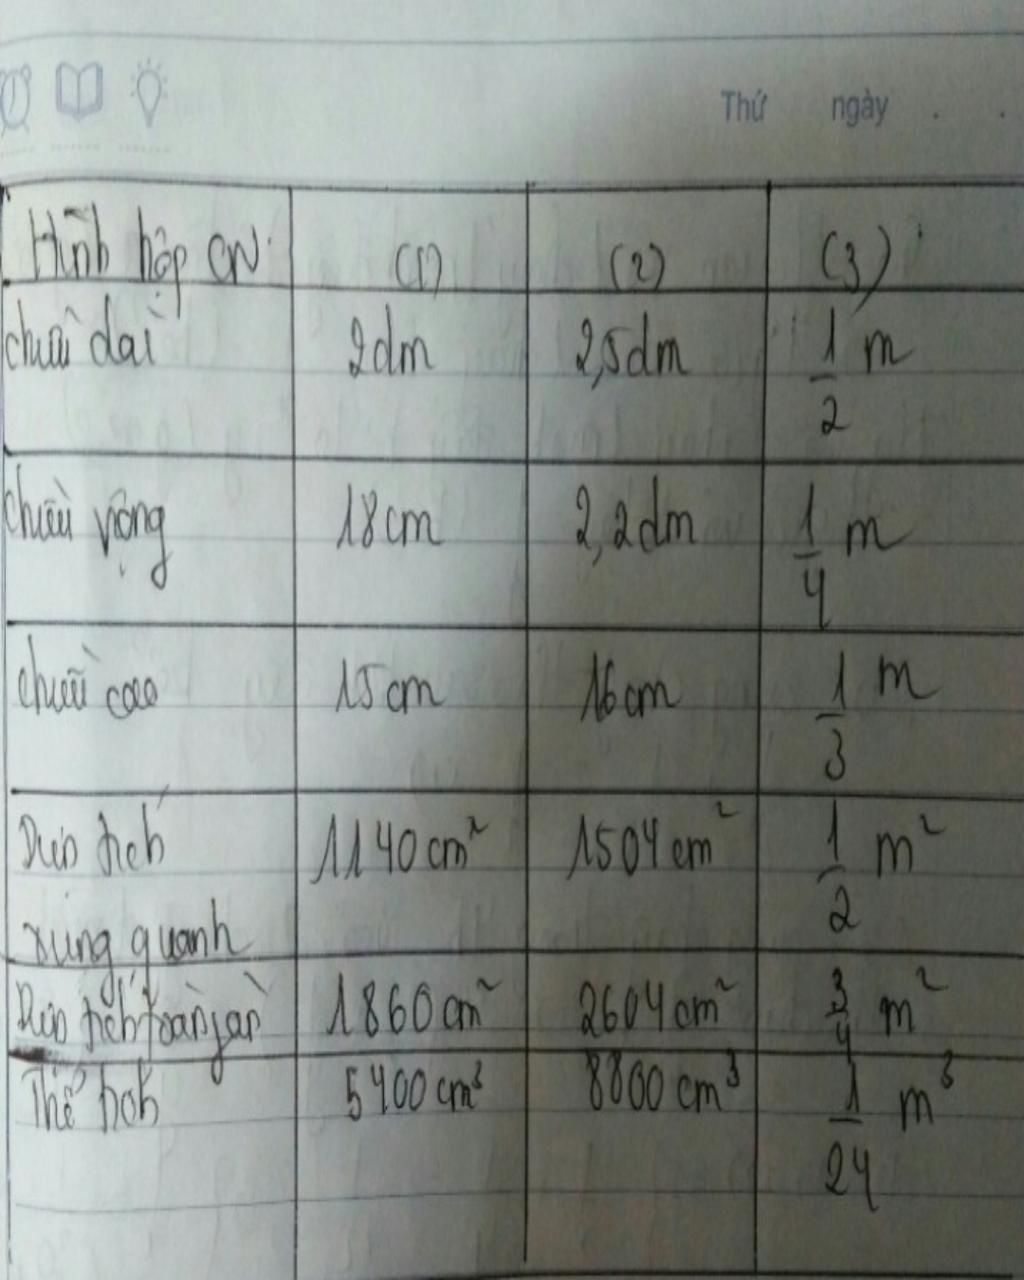 Thứ ngày
Hình hộp CN (1) (2) (3)
chiều dài 2dm 2,5dm 1/2 m
chiều rộng 18cm 2,2dm 1/4 m
chiều cao 15cm 16cm 1/3 m
Diện tích 1140cm² 1504cm² 1/2 m²
xung quanh
Diện tích toàn 1860cm² 2604cm² 3/4 m²
Thể tích 5400cm³ 8800cm³ 1/24 m³